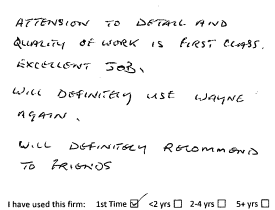 ATTENSION TO DETAIL AND
QUALITY OF WORK IS FIRST CLASS.
EXCELLENT JOB.
WILL DEFINITELY USE WAYNE
AGAIN.
WILL DEFINITELY RECOMMEND
TO FRIENDS
I have used this firm: 1st Time ☑ <2 yrs ☐ 2-4 yrs ☐ 5+ yrs ☐